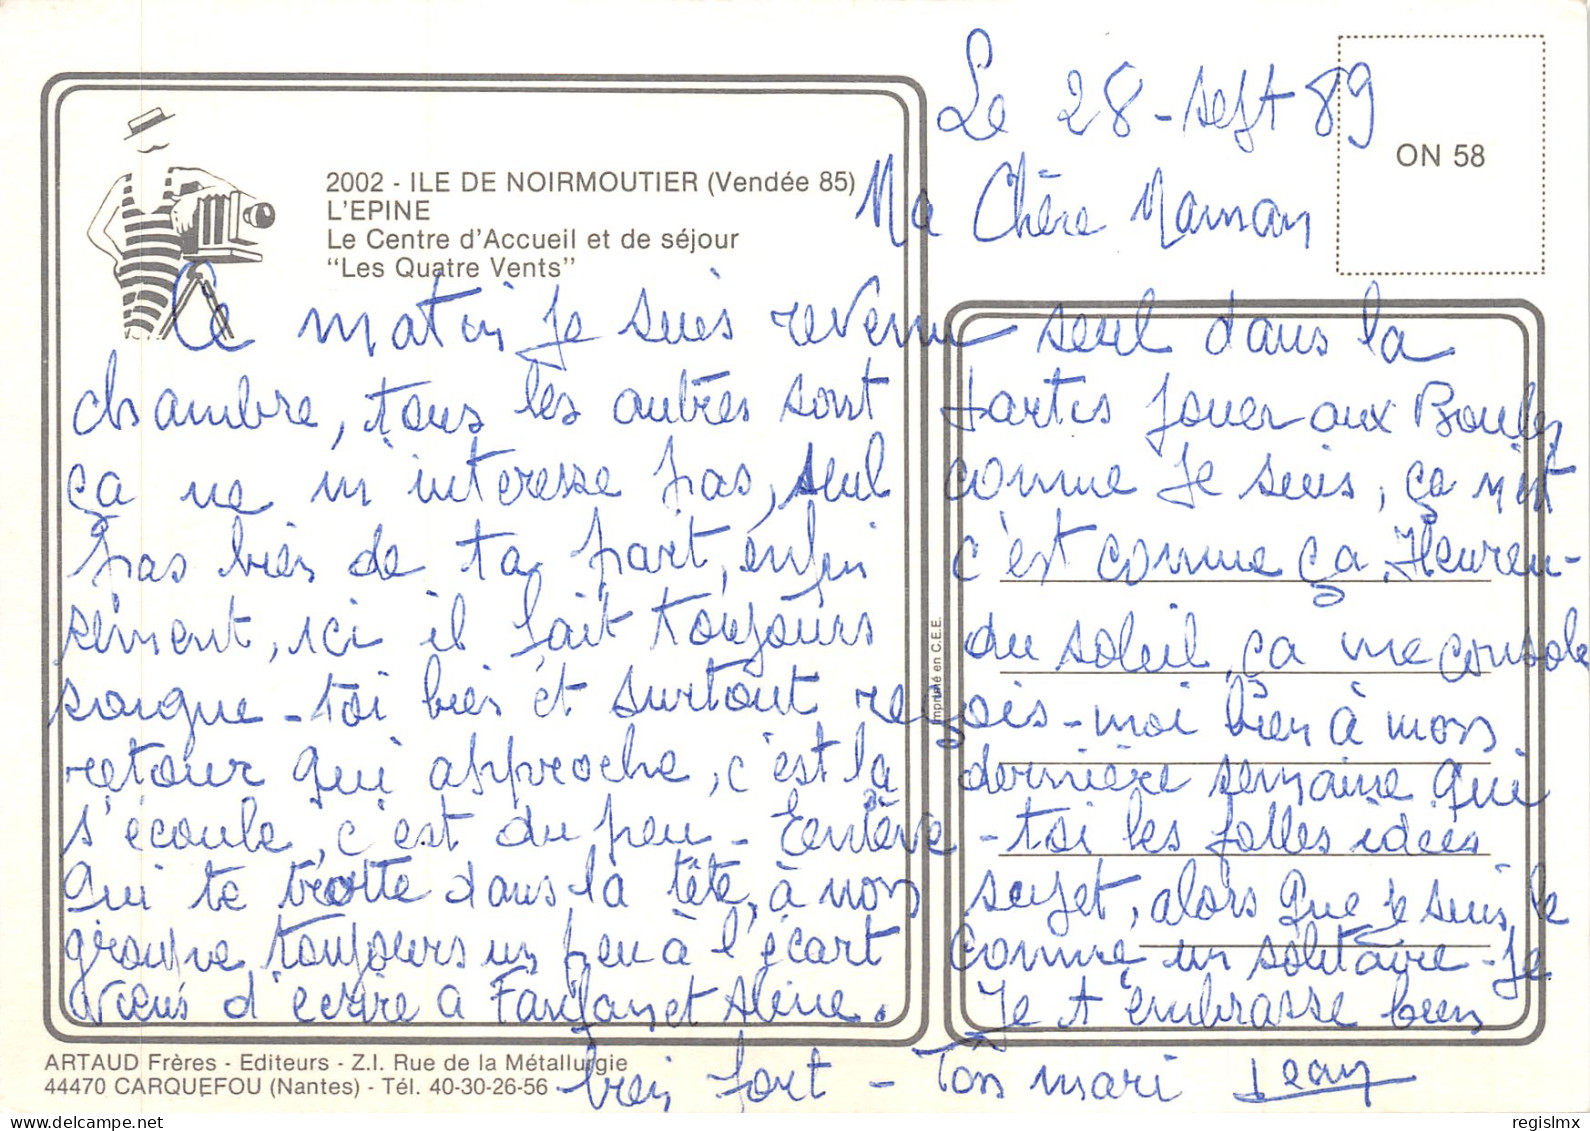 Le 28 - sept 89
ON 58
2002 - ILE DE NOIRMOUTIER (Vendée 85)
L'EPINE
Le Centre d'Accueil et de séjour
"Les Quatre Vents"
Ma Chère Maman
Ce matin je suis revenu seul dans la
chambre, tous les autres sont partis jouer aux Boules
ça ne m'interesse pas, seul comme je suis, ça n'est
pas bien de ta part, enfin c'est comme ça. Heureu-
sement, ici il fait toujours du soleil, ça me console
soigne - toi bien et surtout reçois - moi bien à mon
retour qui approche, c'est la dernière semaine qui
s'écoule, c'est du peu - Enlève - toi les folles idées
qui te trotte dans la tête, à mon sujet, alors que je suis le
groupe toujours un peu à l'écart comme un solitaire - Je
viens d'ecrire a Fanfan et Aline. Je t'embrasse bien
bien fort - Ton mari Jean
Imprimé en C.E.E.
ARTAUD Frères - Editeurs - Z.I. Rue de la Métallurgie
44470 CARQUEFOU (Nantes) - Tél. 40-30-26-56
regislmx